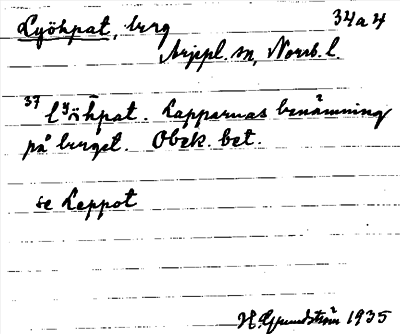 Lyöhpat, berg 34a4
Arjepl. sn, Norrb. l.
37 lyöhpat. Lapparnas benämning
på berget. Obek. bet.
se Leppot
H. Grundström 1935